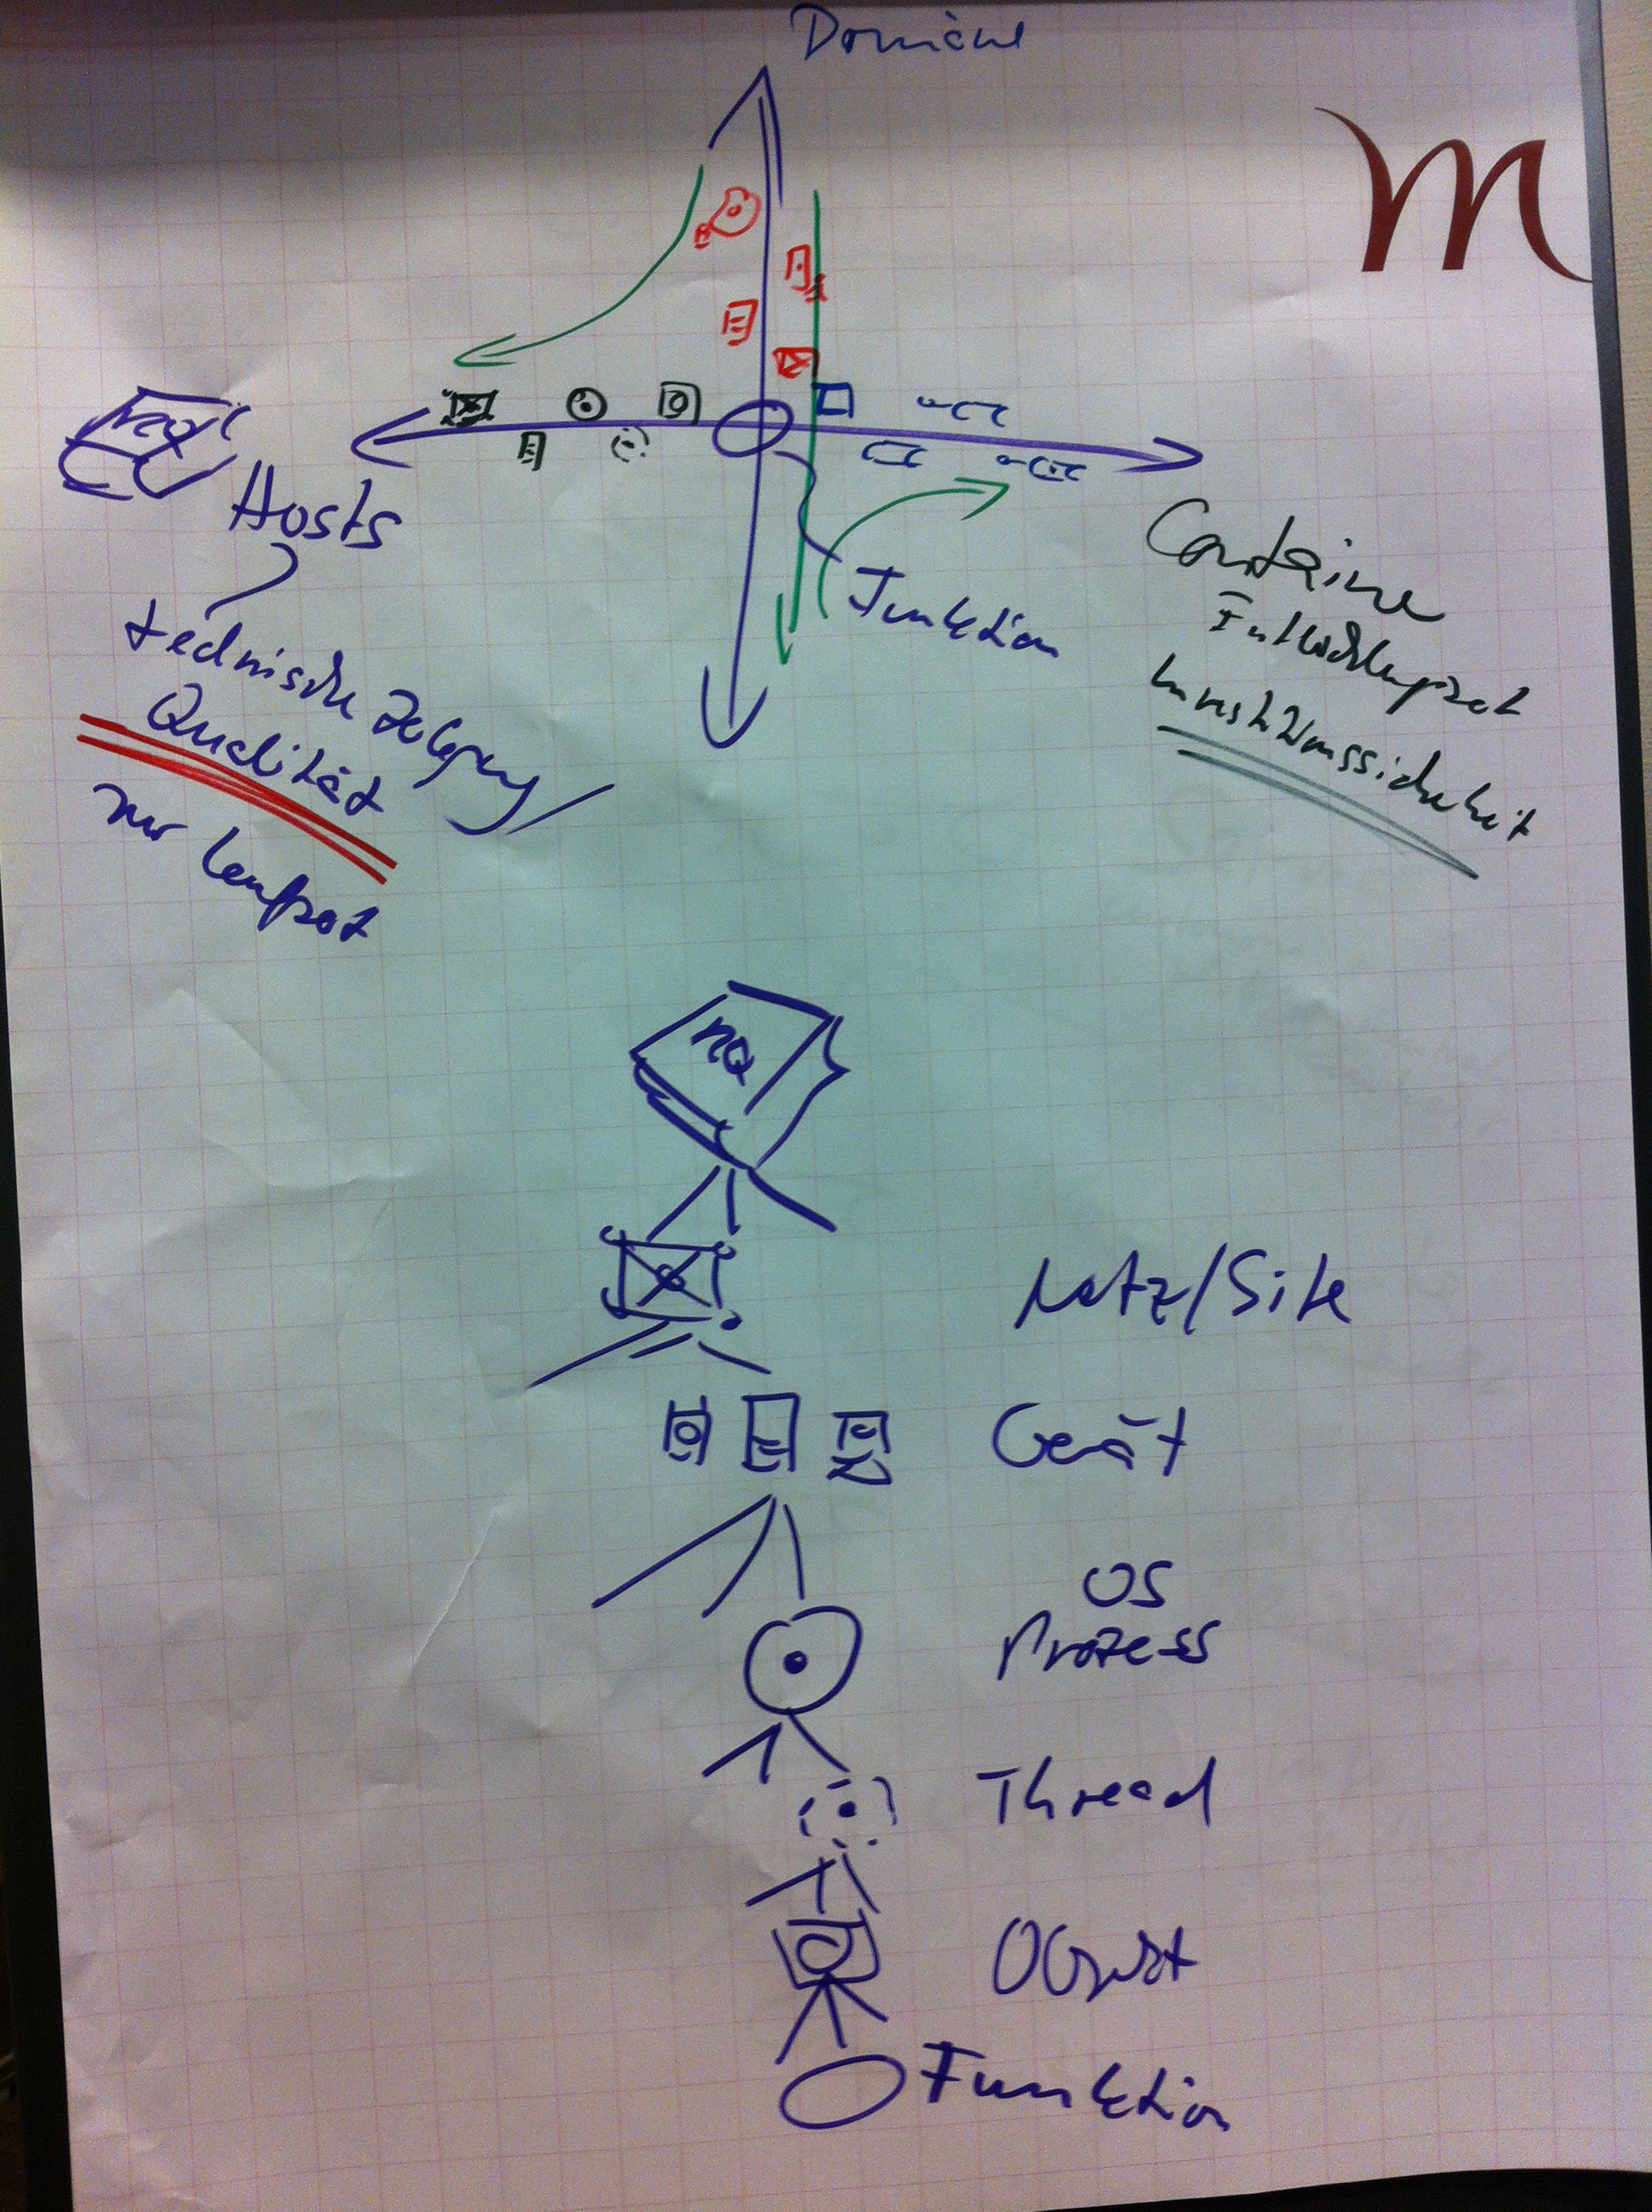 Domäne
m
Hosts
technische
Qualität
zur Laufzeit
Funktion
Container
Entwicklungszeit
NQ
Netz/Site
Gerät
OS
Prozess
Thread
Objekt
Funktion